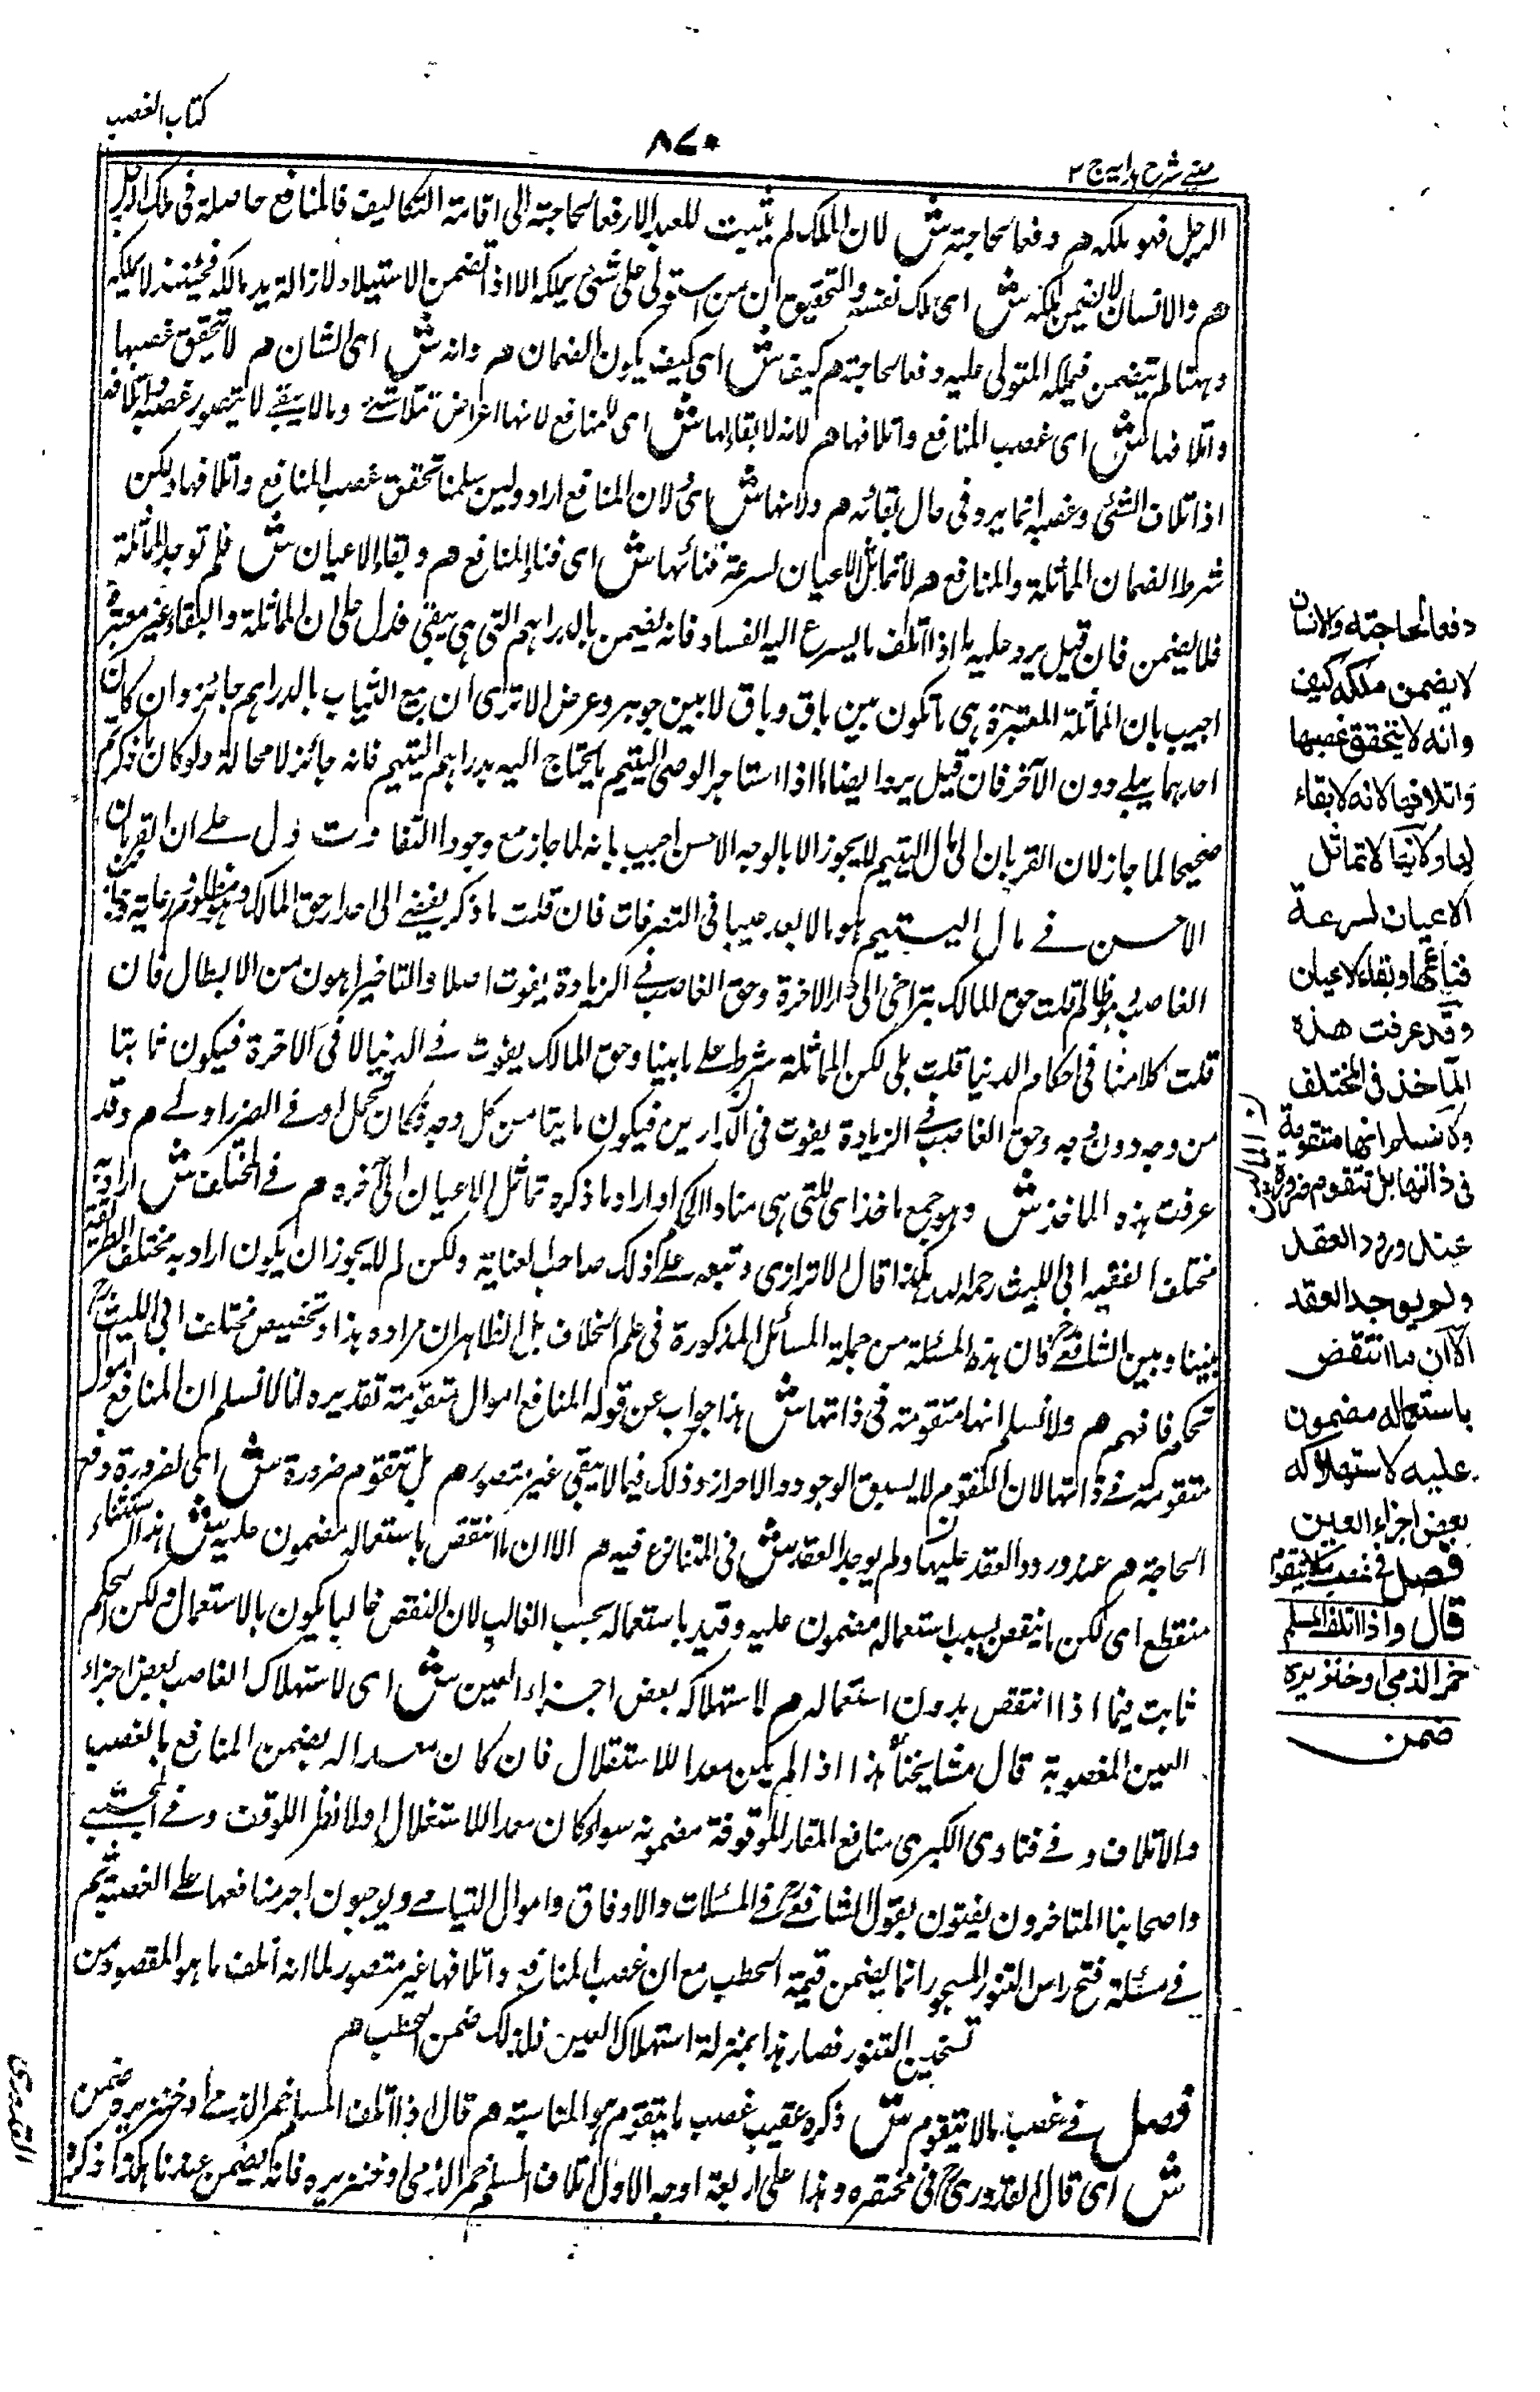 كتاب الغصب
٨٧٠
عينے شرح ہدايہ ج ٣
الرجل فهو ملكه هم دفعا لحاجته ش لان الملك لم يثبت للعبد الا دفعا لحاجته الى اقامة التكاليف فالمنافع حاصلة فى ملك الرجل
هم والانسان لا يضمن ملكه ش اى ملك نفسه والتحقيق ان من استولى على شئ يملكه الا اذا تضمن الاستيلاء لازالة يد مالكه فحينئذ لا يملكه
وههنا لم يتضمن فيملكه المتولى عليه دفعا لحاجته هم كيف ش اى كيف يكون الضمان هم وانه ش اى الشان هم لا يتحقق غصبها
واتلافها ش اى غصب المنافع واتلافها هم لانه لا بقاء لها ش اى للمنافع لانها اعراض تتلاشى وما لا يبقے لا يتصور غصبه واتلافه
اذ اتلاف الشئى وغصبه انما يرد فى حال بقائه هم ولانها ش اى ولان المنافع اراد ولئن سلمنا تحقق غصب المنافع واتلافها ولكن
شرط الضمان المماثلة والمنافع هم لا تماثل الاعيان لسرعة فنائها ش اى فناء المنافع هم وبقاء الاعيان ش فلم توجد المماثلة
فلا يضمن فان قيل يرد عليه ما اذا اتلف ما يسرع اليه الفساد فانه يضمن بالدراهم التى هى يبقى فدل على ان المماثلة والبقاء غير معتبرة
اجيب بان المماثلة المعتبرة هى ما تكون بين باق وباق لا بين جوهر وعرض الا ترى ان بيع الثياب بالدراهم جائز وان كان
احدهما يبلے دون الآخر فان قيل يرد ايضا ما اذا استاجر الوصى لليتيم ما يحتاج اليه بدراهم اليتيم فانه جائز لا محالة ولو كان ما ذكرتم
صحيحا لما جاز لان القربان الى مال اليتيم لا يجوز الا بالوجه الاحسن اجيب بانه لما جاز مع وجود التفاوت دل علے ان القربان
الاحسن فے مال اليتيم هو ما لا يعد عيبا فى التصرفات فان قلت ما ذكر يفضے الى اهدار حق المالك وهو مظلوم رعاية حق
الغاصب وهو ظالم قلت حق المالك يتراخى الى دار الاخرة وحق الغاصب فے الزيادة يفوت اصلا والتاخير اهون من الابطال فان
قلت كلامنا فى احكام الدنيا قلت بلى لكن المماثلة شرط علے ما بينا وحق المالك يفوت فے الدنيا لا فى الآخرة فيكون ثابتا
من وجه دون وجه وحق الغاصب فے الزيادة يفوت فى الدارين فيكون فايتا من كل وجه فكان تحمل ادنے الضرر اولے هم وقد
عرفت هذه الماخذ ش وهو جمع ماخذ اى التى هى مناط الحكم اراد ما ذكره تماثل الاعيان الى آخره هم فے المختلف ش اراد به
مختلف الفقيه ابى الليث رحمه الله هكذا قال الاترازى وتبعه علے ذلك صاحب العناية ولكن لم لا يجوز ان يكون اراد به مختلف الطريقة
بيننا وبين الشافعے فان هذه المسئلة من جملة المسائل المذكورة فى علم الخلاف بل الظاهر ان مراده هذا وتخصيص مختلف ابى الليث
تحكم فافهم هم ولا نسلم انها متقومة فى ذاتها ش هذا جواب عن قوله المنافع اموال متقومة تقديره انا لا نسلم ان المنافع اموال
متقومة فے ذاتها لان التقوم لا يسبق الوجود والاحراز وذلك فيما لا يبقى غير متصور هم بل تتقوم ضرورة ش اى لضرورة دفع
الحاجة هم عند ورود العقد عليها ولم يوجد العقد ش فى المتنازع فيه هم الا ان ما انتقص باستعماله مضمون عليه ش هذا استثناء
منقطع اى لكن ما ينقص بسبب استعماله مضمون عليه وقيد باستعماله بحسب الغالب لان النقص غالبا يكون بالاستعمال ولكن الحكم
ثابت فيما اذا انتقص بدون استعماله هم لاستهلاكه بعض اجزاء العين ش اى لاستهلاك الغاصب بعض اجزاء
العين المغصوبة قال مشايخنا هذا اذا لم يكن معدا للاستغلال فان كان معدا له يضمن المنافع بالغصب
والاتلاف و فے فتاوى الكبرى منافع العقار الموقوفة مضمونة سواء كان معدا للاستغلال او لا نظرا للوقف وفے المجتبے
واصحابنا المتاخرون يفتون بقول الشافعے فے المسئلات والاوقاف واموال اليتامے ويوجبون اجر منافعها علے الغصبة ثم
فے مسئلة فتح راس التنور المسجور انما يضمن قيمة الحطب مع ان غصب المنافع واتلافها غير متصور لما انه اتلف ما هو المقصود من
تسخين التنور فصار هذا بمنزلة استهلاك العين فلذلك ضمن الحطب هم
فصل فے غصب ما لا يتقوم ش ذكره عقيب غصب ما يتقوم هو المناسبة هم قال اذا اتلف المسلم خمر الذمے او خنزيره ضمن
ش اى قال القدورى فى مختصره وهذا على اربعة اوجه الاول اتلاف المسلم خمر الذمى او خنزيره فانه يضمن عندنا هكذا ذكره
القدورى
دفعا لحاجته والانسان
لا يضمن ملكه كيف
وانه لا يتحقق غصبها
واتلافها لانه لا بقاء
لها ولانها لا تماثل
الاعيان لسرعة
فنائها وبقاء الاعيان
وقد عرفت هذه
المآخذ فى المختلف
ولا نسلم انها متقومة
فى ذاتها بل تتقوم ضرورة
عند ورود العقد
ولم يوجد العقد
الا ان ما انتقض
باستعماله مضمون
عليه لاستهلاكه
بعض اجزاء العين
فصل فى غصب ما لا يتقوم
قال واذا اتلف المسلم
خمر الذمى او خنزيره
ضمن